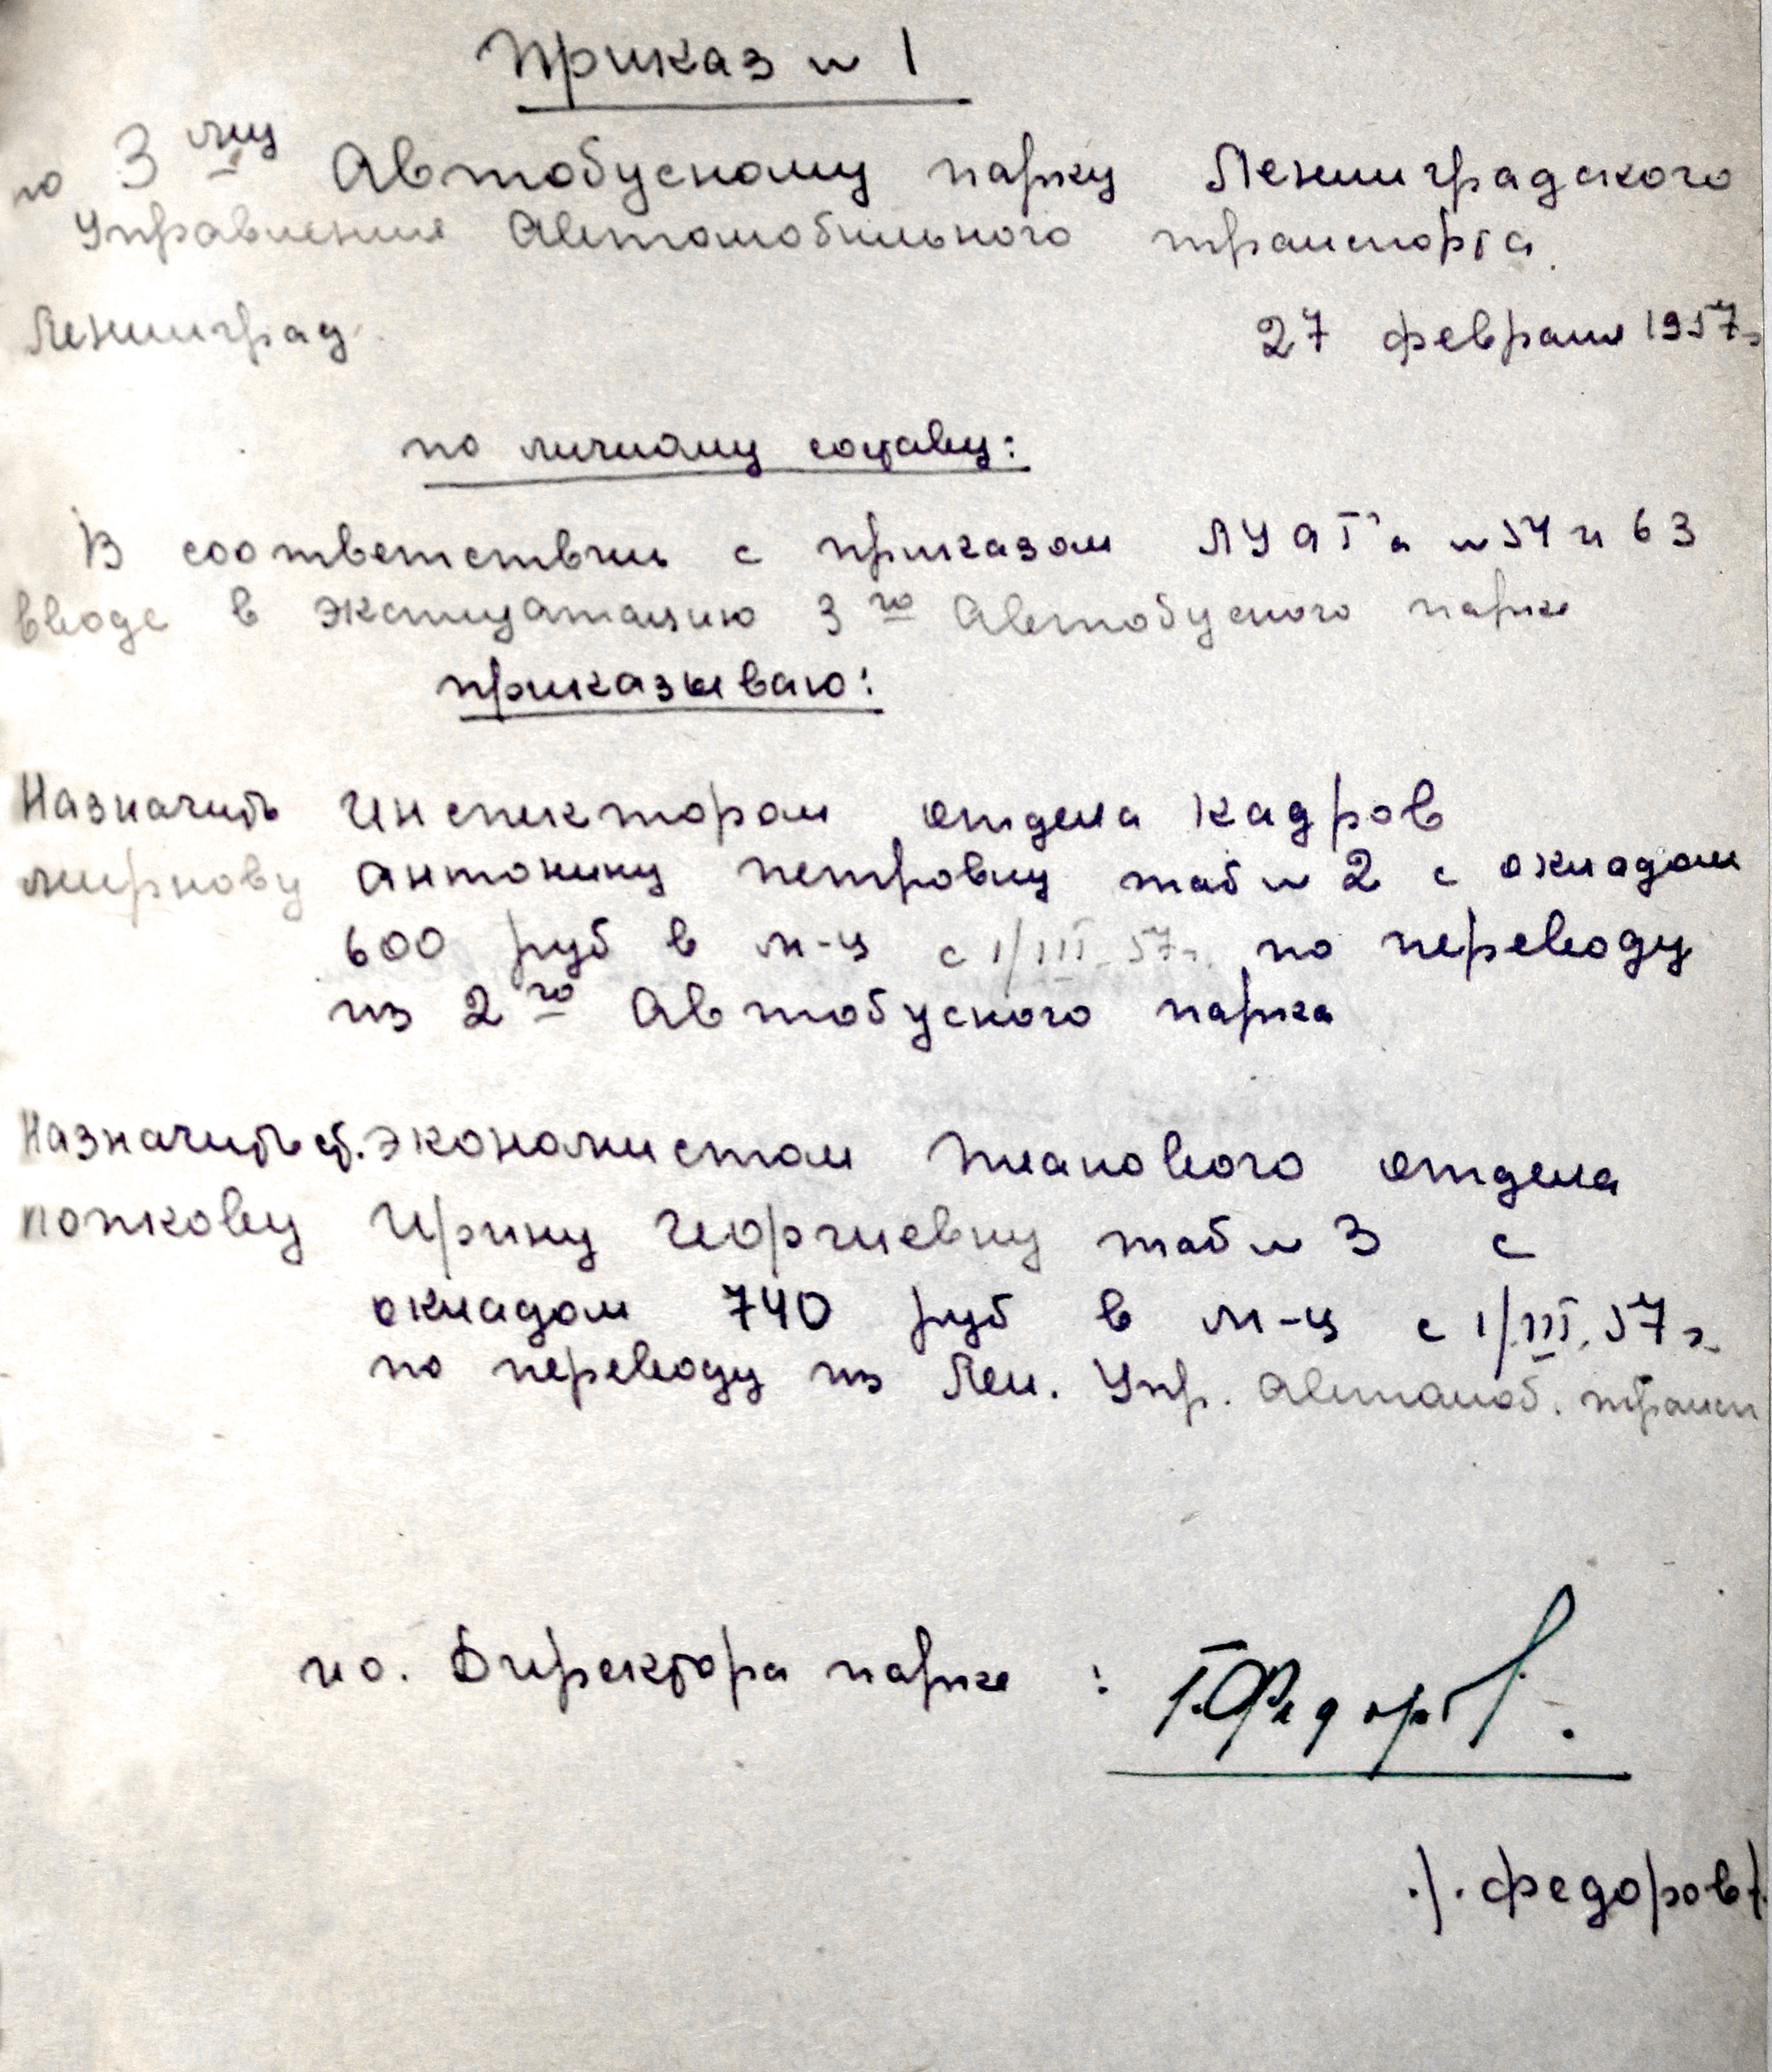 Приказ № 1
по 3му Автобусному парку Ленинградского
Управления Автомобильного транспорта.
Ленинград.
27 февраля 1957г
по личному составу:
В соответствии с приказом ЛУАТ'а № 54 и 63
вводе в эксплуатацию 3го Автобусного парка
приказываю:
Назначить Инспектором отдела кадров
мирнову Антонину Петровну таб № 2 с окладом
600 руб в м-ц с 1/III-57г. по переводу
из 2го Автобусного парка
Назначить ст. экономистом планового отдела
Попкову Ирину Георгиевну таб № 3 с
окладом 740 руб в м-ц с 1/III.57г.
по переводу из Лен. Упр. Автомоб. трансп
ио. Директора парка : Т.Федоров.
./. Федоров /.